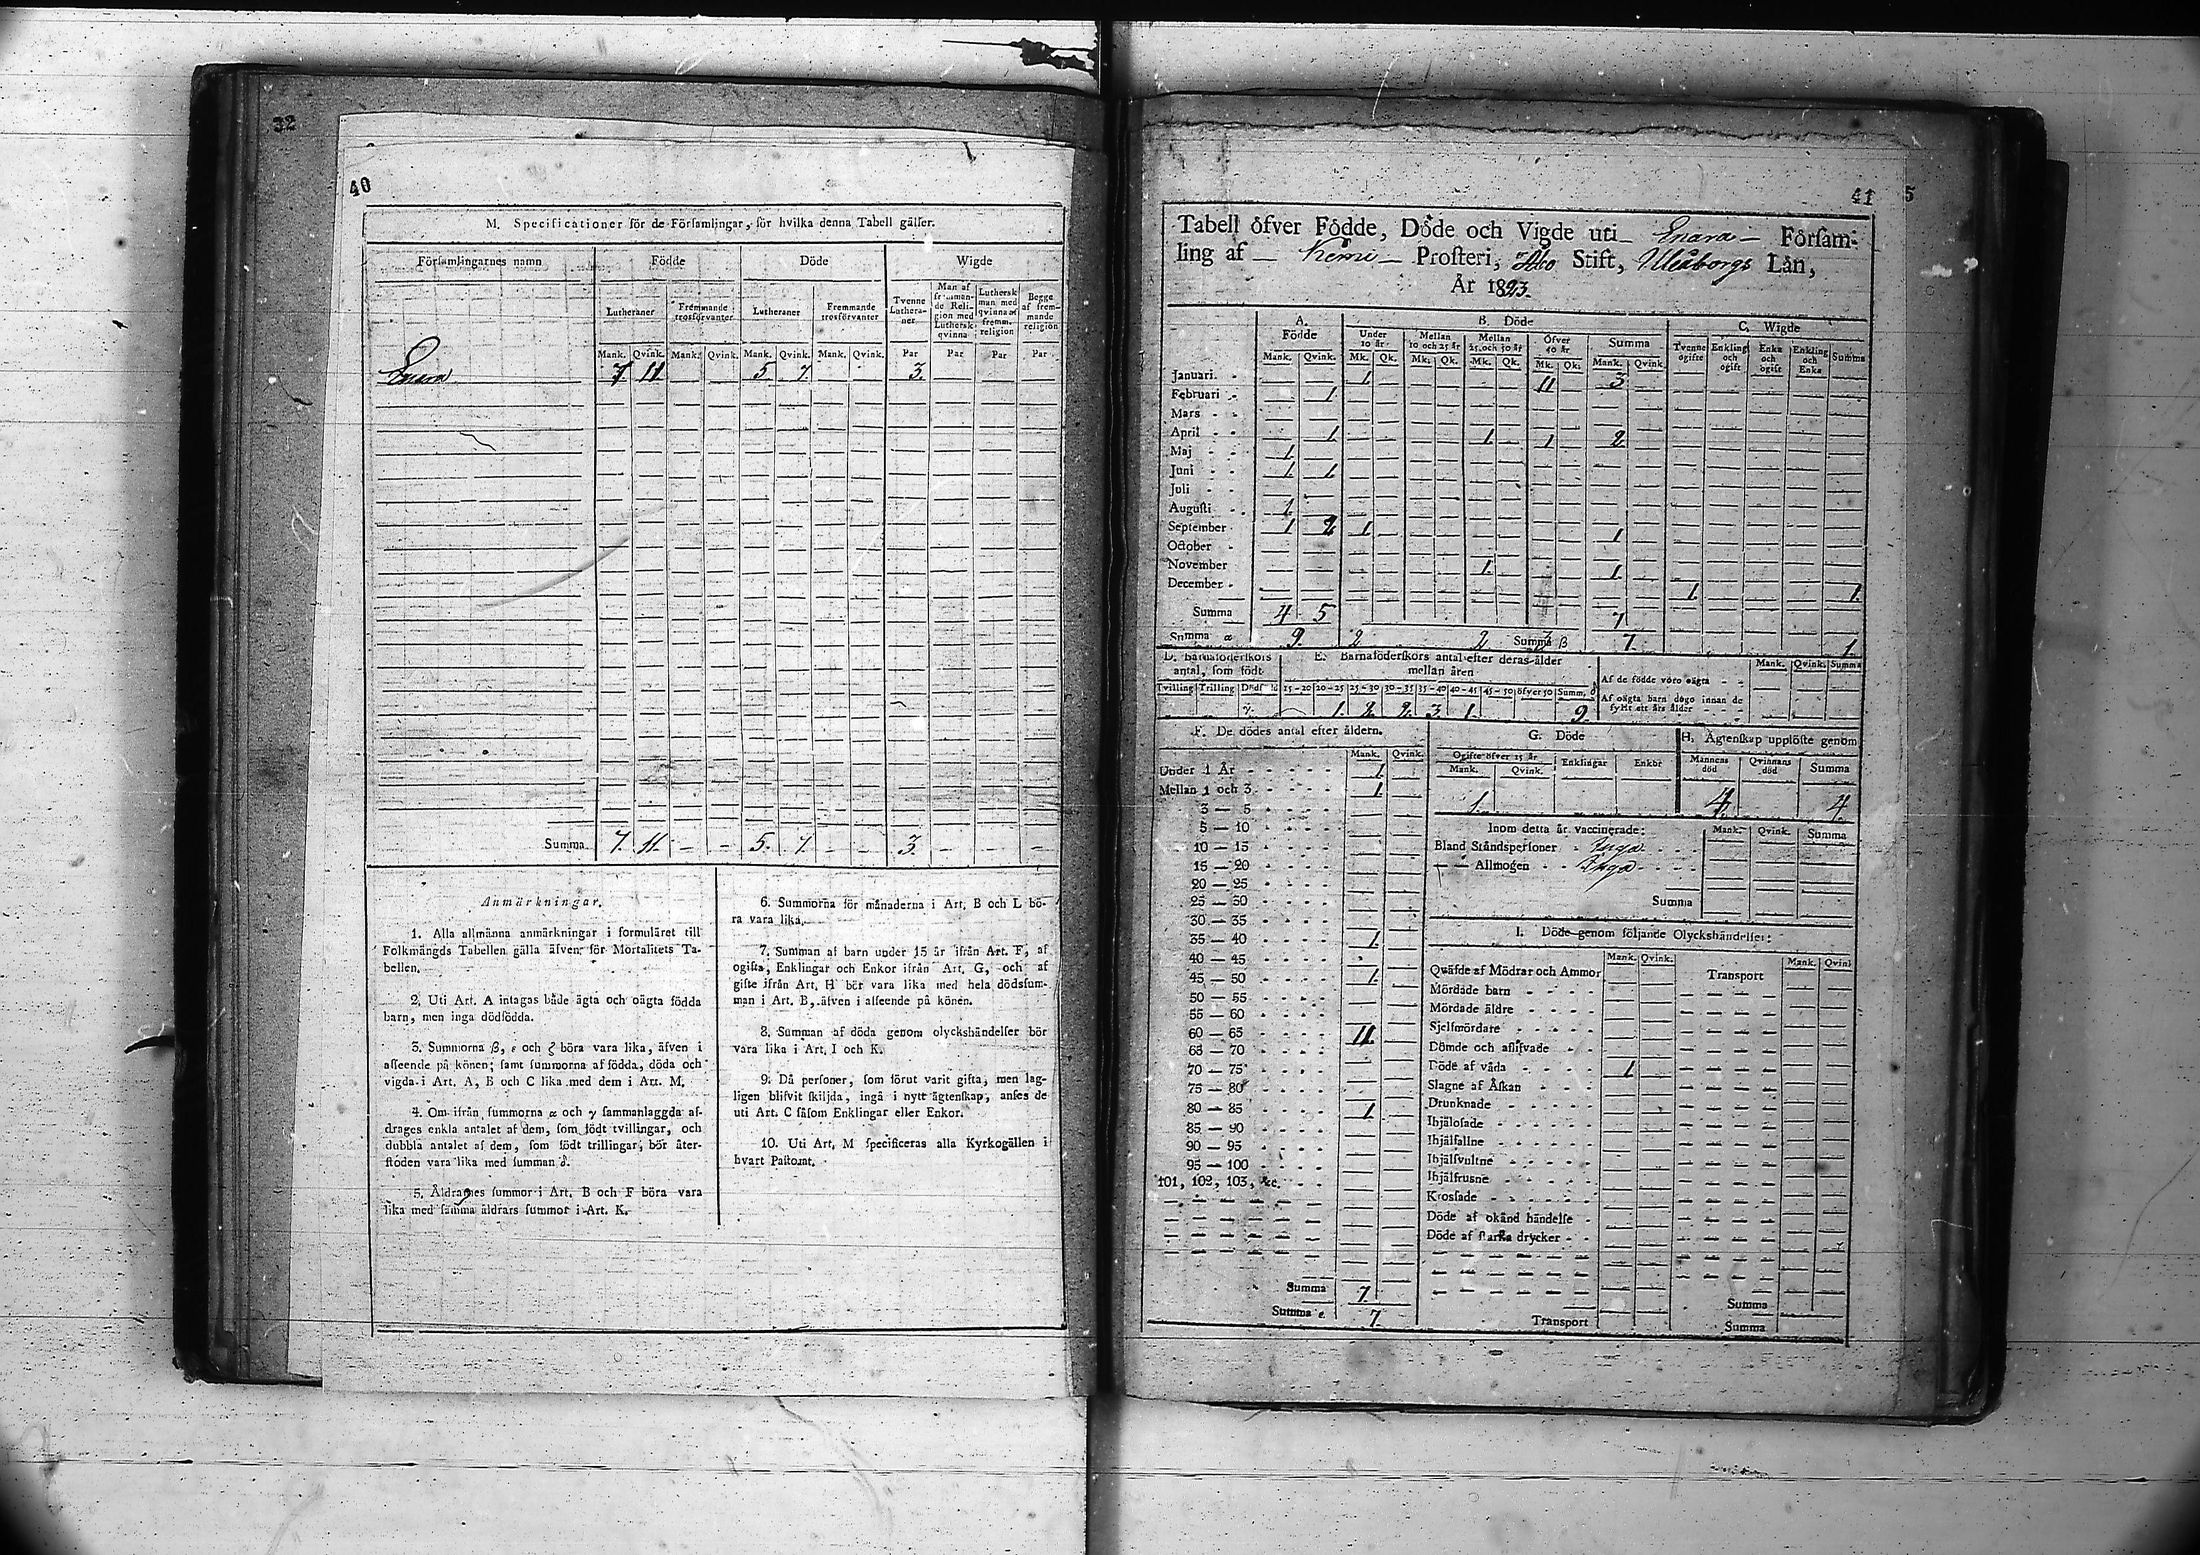 32
40
M. Specificationer för de Församlingar, för hvilka denna Tabell gäller.
Församlingarnes namn Födde Döde Wigde
Lutheraner Fremmande trosförvanter Lutheraner Fremmande trosförvanter Tvenne Lutheraner Man af fremmande Religion med Luthersk qvinna Luthersk man med qvinna af fremm. religion Begge af fremmande religion
Mank. Qvink. Mank. Qvink. Mank. Qvink. Mank. Qvink. Par Par Par Par
Enara 7 11 5. 7. 3.
Summa 7. 11. - - 5. 7. - - 3. - - -
Anmärkningar.
1. Alla allmänna anmärkningar i formuläret till
Folkmängds Tabellen gälla äfven för Mortalitets Ta-
bellen.
2. Uti Art. A intagas både ägta och oägta födda
barn, men inga dödfödda.
3. Summorna ß, ε och ζ böra vara lika, äfven i
afseende på könen; samt summorna af födda, döda och
vigda i Art. A, B och C lika med dem i Art. M.
4. Om ifrån summorna α och γ sammanlaggda af-
drages enkla antalet af dem, som födt tvillingar, och
dubbla antalet af dem, som födt trillingar, bör åter-
stoden vara lika med summan δ.
5. Åldrarnes summor i Art. B och F böra vara
lika med samma åldrars summor i Art. K.
6. Summorna för månaderna i Art. B och L bö-
ra vara lika.
7. Summan af barn under 15 år ifrån Art. F, af
ogifta, Enklingar och Enkor ifrån Art. G, och af
gifte ifrån Art. H bör vara lika med hela dödssum-
man i Art. B, äfven i afseende på könen.
8. Summan af döda genom olyckshändelser bör
vara lika i Art. I och K.
9. Då personer, som förut varit gifta, men lag-
ligen blifvit skiljda, ingå i nytt ägtenskap, anses de
uti Art. C såsom Enklingar eller Enkor.
10. Uti Art. M specificeras alla Kyrkogällen i
hvart Pastorat.
41 5
Tabell öfver Födde, Döde och Vigde uti Enara Församl-
ling af Kemi Prosteri, Åbo Stift, Uleåborgs Län,
År 1823.
A. Födde B. Döde C. Wigde
Under 10 år Mellan 10 och 25 år Mellan 25 och 50 år Öfver 50 år Summa Tvenne ogifte Enkling och ogift Enka och ogift Enkling och Enka Summa
Mank. Qvink. Mk. Qk. Mk. Qk. Mk. Qk. Mk. Qk. Mank. Qvink.
Januari 1 11 3
Februari 1
Mars
April 1. 1. 1 2
Maj 1.
Juni 1 1
Juli
Augusti 1
September 1 2 1 1
October
November 1. 1.
December 1. 1.
Summa 4 5 7
Summa α 9. 2 2 Summa ß 7. 1.
D. Barnaföderskors antal, som födt
E. Barnaföderskors antal efter deras ålder mellan åren
Tvilling Trilling 15-20 20-25 25-30 30-35 35-40 40-45 45-50 öfver 50 Summ. δ
γ. 1. 2. 2. 3. 1. 9.
Mank. Qvink. Summa
Af de födde voro oägta
Af oägta barn dogo innan de
fyllt ett års ålder
F. De dödes antal efter åldern.
Mank. Qvink.
Under 1 År 1.
Mellan 1 och 3 1.
3 — 5
5 — 10
10 — 15
15 — 20
20 — 25
25 — 30
30 — 35
35 — 40 1.
40 — 45
45 — 50 1.
50 — 55
55 — 60
60 — 65 11.
65 — 70
70 — 75
75 — 80
80 — 85 1.
85 — 90
90 — 95
95 — 100
101, 102, 103, &c.
Summa 7.
Summa ε. 7.
G. Döde
Ogifte öfver 15 år Enklingar Enkor
Mank. Qvink.
1.
H. Ägtenskap upplöste genom
Mannens död Qvinnans död Summa
4. 4.
Inom detta år vaccinerade: Mank. Qvink. Summa
Bland Ståndspersoner Inga
— — Allmogen Inga
Summa
I. Döde genom följande Olyckshändelser:
Mank. Qvink. Mank. Qvink
Qväfde af Mödrar och Ammor Transport
Mördade barn
Mördade äldre
Sjelfmördare
Dömde och aflifvade
Döde af våda 1
Slagne af Åskan
Drunknade
Ihjälosade
Ihjälfallne
Ihjälsvultne
Ihjälfrusne
Krossade
Döde af okänd händelse
Döde af starka drycker
Summa
Transport Summa